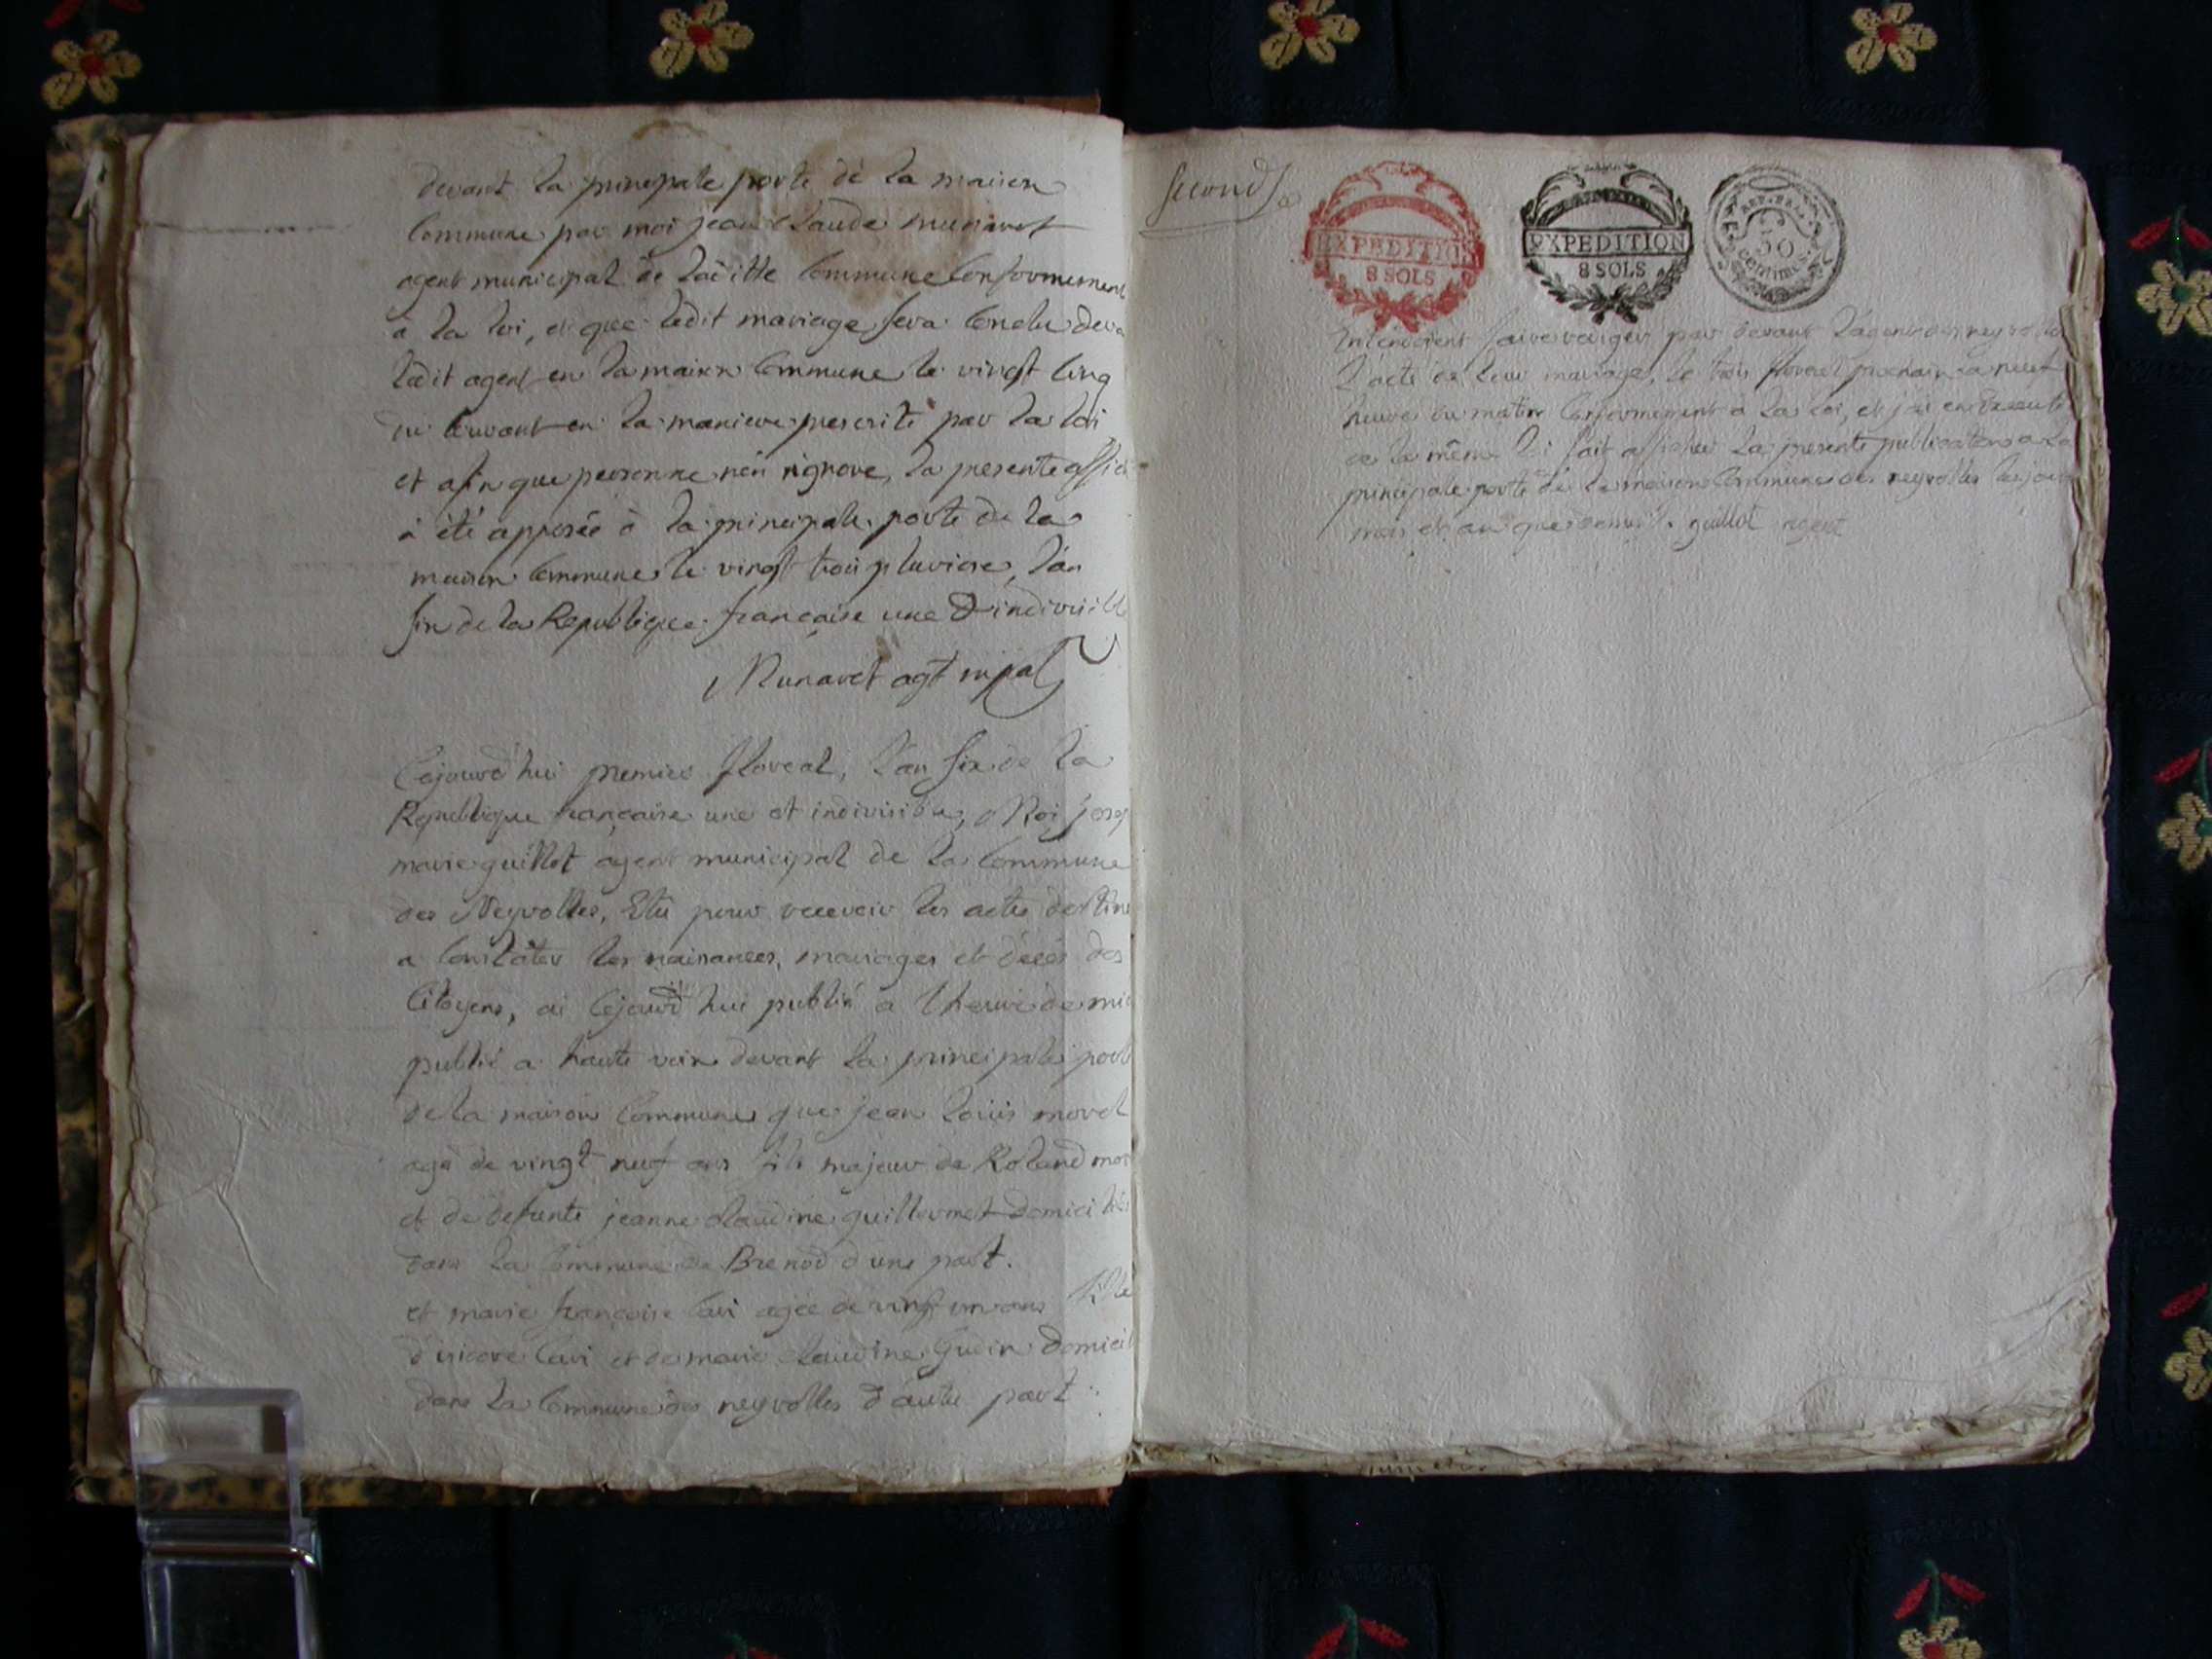 devant la principale porte de la maison
Commune par moi jean Claude munaret
agent municipal de laditte Commune Conformement
à la loi, et que ledit mariage sera Conclu deva
ledit agent en la maison Commune le vingt Cinq
du Courant en la maniere prescrite par la loi
et afin que personne n'en n'ignore, la presente affich
à été apposée à la principale porte de la
maison Commune le vingt trois pluviose, l'an
six de la Republique française une & indivisible
Munaret agt mpal
Cejourd'hui premier floreal, l'an six de la
Republique française une et indivisible, Moi josep
marie guillot agent municipal de la Commune
des Neyrolles, Elu pour recevoir les actes destinés
a Constater les naisances, mariages et décés des
Citoyens, ai Cejourd'hui publié a l'heure de mi
publié a haute voix devant la principale porte
de la maison Commune que jean Louis morel
agé de vingt neuf ans fils majeur de Roland mor
et de defunte jeanne Claudine guillermet domicilié
dans la Commune de Brenod d'une part.
et marie françoise Cavi agée de vingt un ans fille
d'isidore Cavi et de marie Claudine Gudin domicil
dans la Commune des neyrolles d'autre part.
Second
EXPEDITION
8 SOLS
EXPEDITION
8 SOLS
REP. FRA.
50
centimes.
Entendoient faire rediger par devant l'agent des neyrolles
l'acte de leur mariage, le trois floreal prochain a neuf
heures du matin Conformement à la loi, et j'ai en Execution
de la même loi fait afficher la presente publication a la
principale porte de la maison Commune des neyrolles les jour
mois et an que dessus. guillot agent